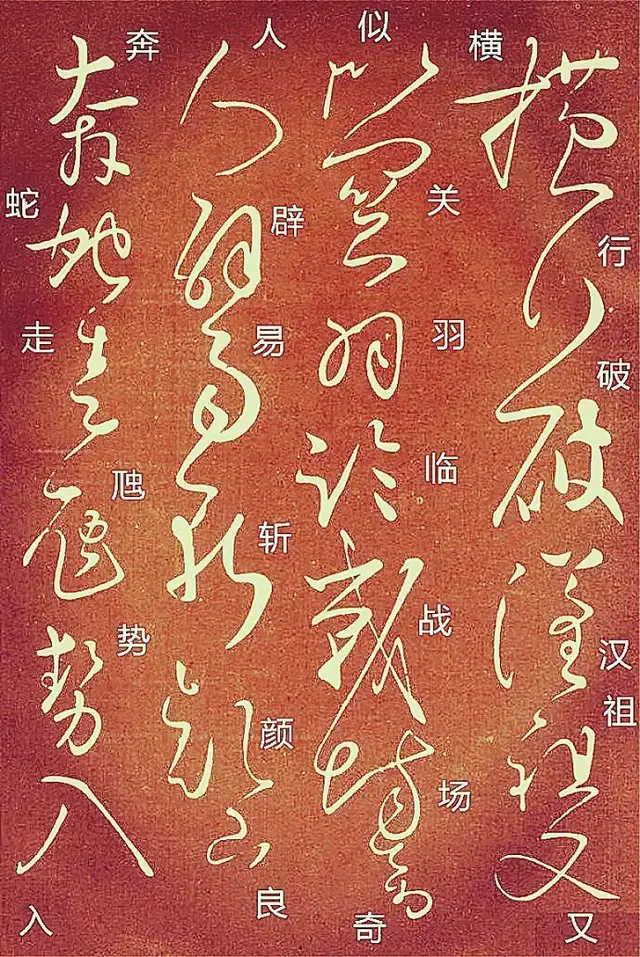 横行破汉祖又
似关羽临战场奇
人辟易斩颜良
奔蛇走虺势入